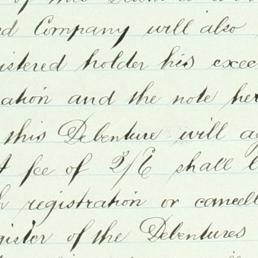 of this
d Company will also
istered holder his exec
ation and the note her
this Debenture will ag
t fee of 2/6 shall b
h registration or cancell
gister of the Debentures